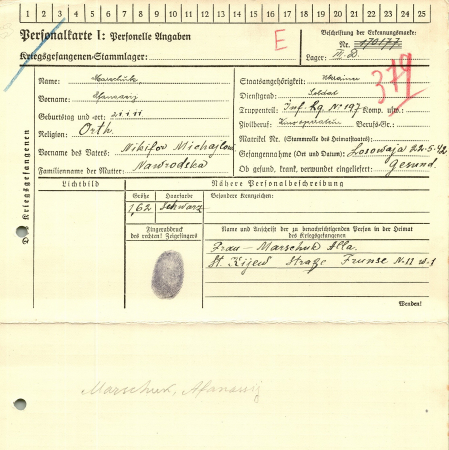 1 2 3 4 5 6 7 8 9 10 11 12 13 14 15 16 17 18 19 20 21 22 23 24 25
Personalkarte I: Personelle Angaben
Kriegsgefangenen-Stammlager:
E
Beschriftung der Erkennungsmarke:
Nr.
Lager:
379
Des Kriegsgefangenen
Name: Marschuk,
Vorname: Afanasij
Geburtstag und -ort:
Religion: Orth.
Vorname des Vaters: Nikifor Michajlow
Familienname der Mutter: Nawrodska
Staatsangehörigkeit: Ukraine
Dienstgrad: Soldat
Truppenteil: Inf. Rg. N° 197 Komp. usw.:
Zivilberuf: Berufs-Gr.:
Matrikel Nr. (Stammrolle des Heimatstaates):
Gefangennahme (Ort und Datum): Losowaja 22-5-42
Ob gesund, krank, verwundet eingeliefert: Gesund.
Lichtbild
Nähere Personalbeschreibung
Größe Haarfarbe Besondere Kennzeichen:
1,62 schwarz
Fingerabdruck
des rechten! Zeigefingers
Name und Anschrift der zu benachrichtigenden Person in der Heimat
des Kriegsgefangenen
Frau - Marschuk Alla.
St. Kijew Straße Frunse N-11 w-1
Wenden!
Marschuk, Afanasij